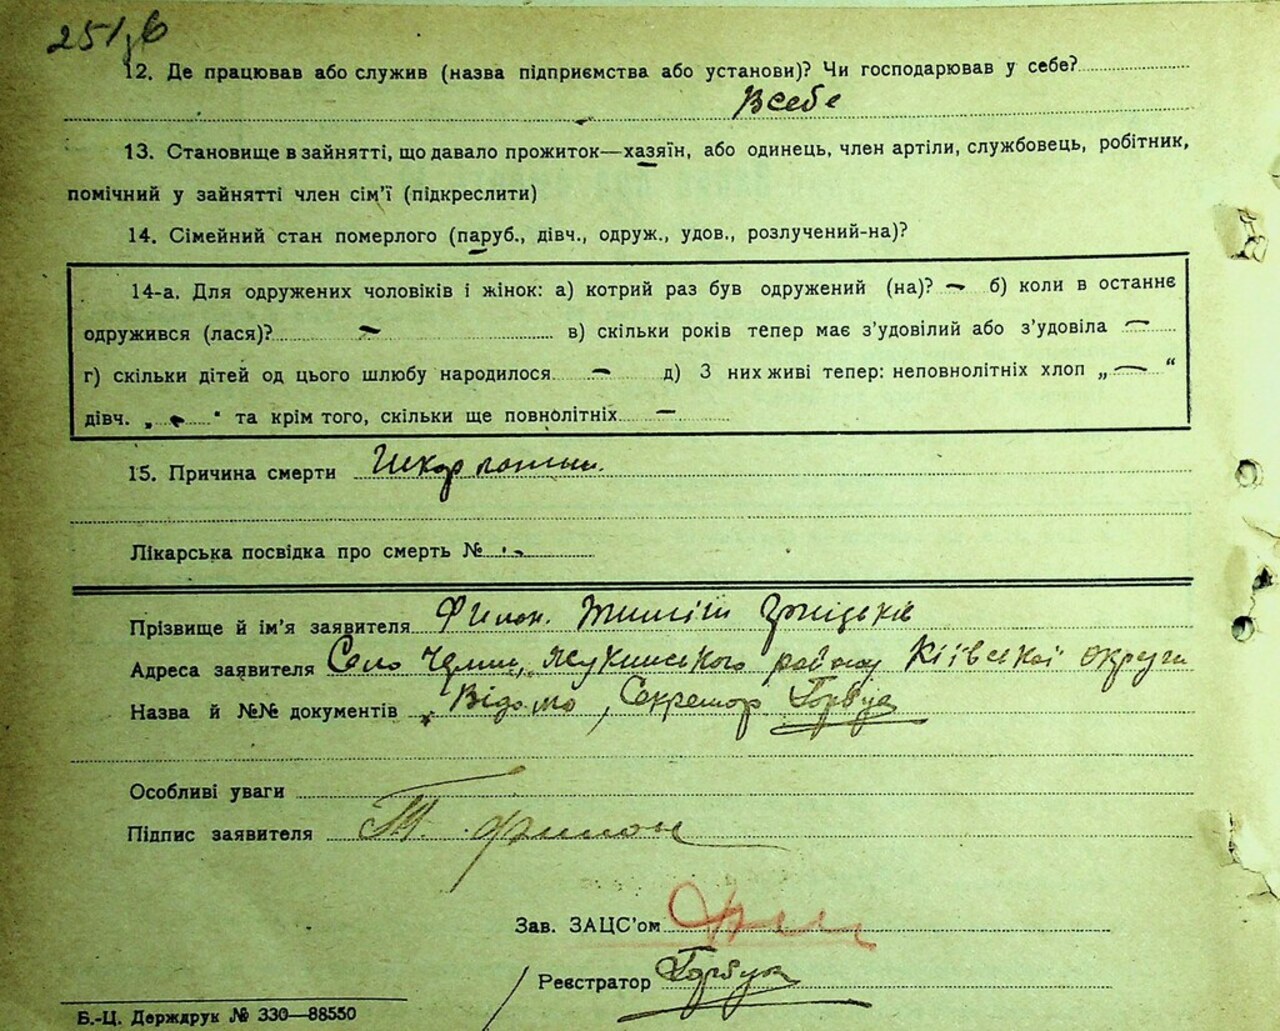 251
12. Де працював або служив (назва підприємства або установи)? Чи господарював у себе?
В себе
13. Становище в зайнятті, що давало прожиток—хазяїн, або одинець, член артіли, службовець, робітник,
помічний у зайнятті член сім'ї (підкреслити)
14. Сімейний стан померлого (паруб., дівч., одруж., удов., розлучений-на)?
14-а. Для одружених чоловіків і жінок: а) котрий раз був одружений (на)? — б) коли в останнє
одружився (лася)? — в) скільки років тепер має з'удовілий або з'удовіла —
г) скільки дітей од цього шлюбу народилося — д) З них живі тепер: неповнолітніх хлоп „—“
дівч. „—“ та крім того, скільки ще повнолітніх —
15. Причина смерти
Лікарська посвідка про смерть № —
Прізвище й ім'я заявителя Филон. Грицьків
Адреса заявителя Село району Київської округи
Назва й №№ документів Відомо, Секретар Горбук
Особливі уваги
Підпис заявителя Т. Филон
Зав. ЗАЦС'ом
Реєстратор Горбук
Б.-Ц. Держдрук № 330—88550